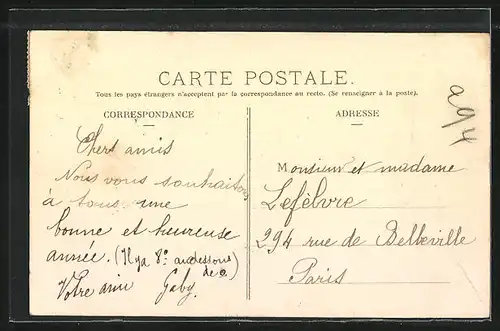 CARTE POSTALE.
Tous les pays étrangers n'acceptent pas la correspondance au recto. (Se renseigner à la poste).
CORRESPONDANCE
Chers amis
Nous vous souhaitons
à tous une
bonne et heureuse
année. (Il y a 8° au dessous
de o)
Votre ami Gaby.
ADRESSE
Monsieur et madame
Lefèbvre
294 rue de Belleville
Paris
a94